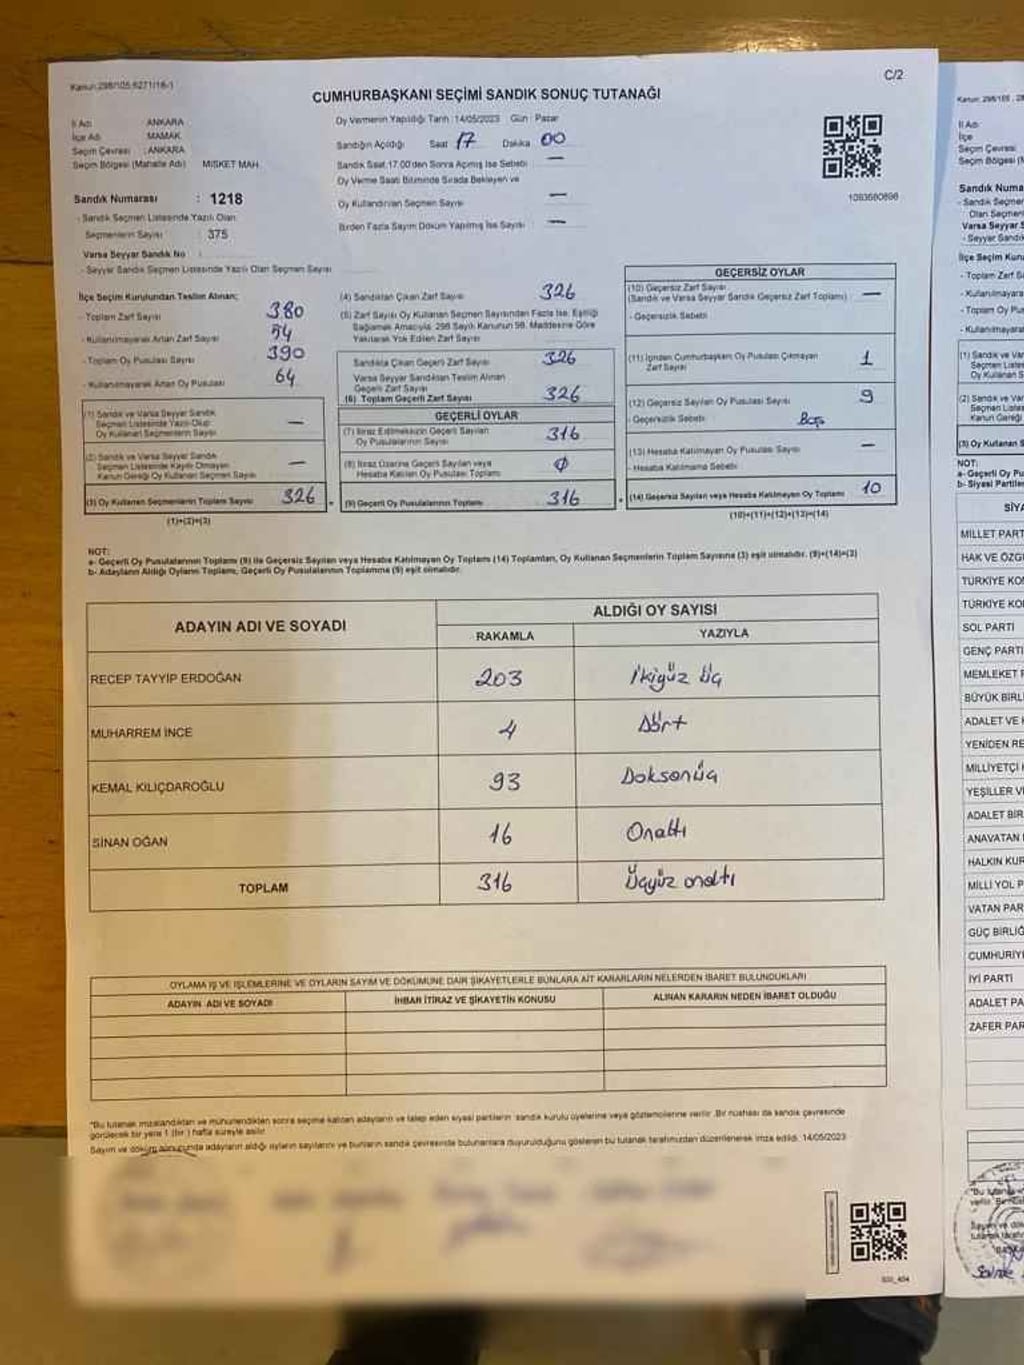 Kanun:298/105,6271/16-1
C/2
CUMHURBAŞKANI SEÇİMİ SANDIK SONUÇ TUTANAĞI
İl Adı : ANKARA
İlçe Adı : MAMAK
Seçim Çevresi : ANKARA
Seçim Bölgesi (Mahalle Adı) MISKET MAH.
Sandık Numarası : 1218
- Sandık Seçmen Listesinde Yazılı Olan
Seçmenlerin Sayısı : 375
Varsa Seyyar Sandık No :
- Seyyar Sandık Seçmen Listesinde Yazılı Olan Seçmen Sayısı
Oy Vermenin Yapıldığı Tarih :14/05/2023 Gün : Pazar
Sandığın Açıldığı Saat 17 Dakika 00
Sandık Saat 17.00'den Sonra Açılmış İse Sebebi —
Oy Verme Saati Bitiminde Sırada Bekleyen ve
Oy Kullandırılan Seçmen Sayısı —
Birden Fazla Sayım Döküm Yapılmış İse Sayısı —
1093680898
İlçe Seçim Kurulundan Teslim Alınan;
- Toplam Zarf Sayısı 380
- Kullanılmayarak Artan Zarf Sayısı 54
- Toplam Oy Pusulası Sayısı 390
- Kullanılmayarak Artan Oy Pusulası 64
(1) Sandık ve Varsa Seyyar Sandık
Seçmen Listesinde Yazılı Olup
Oy Kullanan Seçmenlerin Sayısı —
(2) Sandık ve Varsa Seyyar Sandık
Seçmen Listesinde Kayıtlı Olmayan
Kanun Gereği Oy Kullanan Seçmen Sayısı —
(3) Oy Kullanan Seçmenlerin Toplam Sayısı 326
(1)+(2)=(3)
(4) Sandıktan Çıkan Zarf Sayısı 326
(5) Zarf Sayısı Oy Kullanan Seçmen Sayısından Fazla İse, Eşitliği
Sağlamak Amacıyla, 298 Sayılı Kanunun 98. Maddesine Göre
Yakılarak Yok Edilen Zarf Sayısı
Sandıkta Çıkan Geçerli Zarf Sayısı 326
Varsa Seyyar Sandıktan Teslim Alınan
Geçerli Zarf Sayısı
(6) Toplam Geçerli Zarf Sayısı 326
GEÇERLİ OYLAR
(7) İtiraz Edilmeksizin Geçerli Sayılan
Oy Pusulalarının Sayısı 316
(8) İtiraz Üzerine Geçerli Sayılan veya
Hesaba Katılan Oy Pusulası Toplamı 0
(9) Geçerli Oy Pusulalarının Toplamı 316
GEÇERSİZ OYLAR
(10) Geçersiz Zarf Sayısı
(Sandık ve Varsa Seyyar Sandık Geçersiz Zarf Toplamı) —
- Geçersizlik Sebebi
(11) İçinden Cumhurbaşkanı Oy Pusulası Çıkmayan
Zarf Sayısı 1
(12) Geçersiz Sayılan Oy Pusulası Sayısı 9
- Geçersizlik Sebebi Boş
(13) Hesaba Katılmayan Oy Pusulası Sayısı —
- Hesaba Katılmama Sebebi
(14) Geçersiz Sayılan veya Hesaba Katılmayan Oy Toplamı 10
(10)+(11)+(12)+(13)=(14)
NOT:
a- Geçerli Oy Pusulalarının Toplamı (9) ile Geçersiz Sayılan veya Hesaba Katılmayan Oy Toplamı (14) Toplamları, Oy Kullanan Seçmenlerin Toplam Sayısına (3) eşit olmalıdır. (9)+(14)=(3)
b- Adayların Aldığı Oyların Toplamı, Geçerli Oy Pusulalarının Toplamına (9) eşit olmalıdır.
ADAYIN ADI VE SOYADI
ALDIĞI OY SAYISI
RAKAMLA YAZIYLA
RECEP TAYYİP ERDOĞAN 203 İkiyüz üç
MUHARREM İNCE 4 Dört
KEMAL KILIÇDAROĞLU 93 Doksanüç
SİNAN OĞAN 16 Onaltı
TOPLAM 316 Üçyüz onaltı
OYLAMA İŞ VE İŞLEMLERİNE VE OYLARIN SAYIM VE DÖKÜMÜNE DAİR ŞİKAYETLERLE BUNLARA AİT KARARLARIN NELERDEN İBARET BULUNDUKLARI
ADAYIN ADI VE SOYADI İHBAR İTİRAZ VE ŞİKAYETİN KONUSU ALINAN KARARIN NEDEN İBARET OLDUĞU
"Bu tutanak imzalandıktan ve mühürlendikten sonra seçime katılan adayların ve talep eden siyasi partilerin sandık kurulu üyelerine veya gözlemcilerine verilir .Bir nüshası da sandık çevresinde
görülecek bir yere 1 (bir ) hafta süreyle asılır.
Sayım ve döküm sonucunda adayların aldığı oyların sayılarını ve bunların sandık çevresinde bulunanlara duyurulduğunu gösteren bu tutanak tarafımızdan düzenlenerek imza edildi. 14/05/2023
İl Adı
İlçe
Seçim Çevresi
Seçim Bölgesi (M
Sandık Numara
- Sandık Seçmen
Olan Seçmen
Varsa Seyyar
- Seyyar Sandık
İlçe Seçim Kuru
- Toplam Zarf
- Kullanılmayara
- Toplam Oy Pu
- Kullanılmayara
(1) Sandık ve Var
Seçmen Listes
Oy Kullanan S
(2) Sandık ve Var
Seçmen Listes
Kanun Gereği
(3) Oy Kullanan S
NOT:
a- Geçerli Oy Pu
b- Siyasi Partiler
SİYA
MİLLET PART
HAK VE ÖZG
TÜRKİYE KO
TÜRKİYE KO
SOL PARTİ
GENÇ PARTİ
MEMLEKET P
BÜYÜK BİRL
ADALET VE K
YENİDEN RE
MİLLİYETÇİ H
YEŞİLLER VE
ADALET BİR
ANAVATAN
HALKIN KUR
MİLLİ YOL P
VATAN PAR
GÜÇ BİRLİĞ
CUMHURİYE
İYİ PARTİ
ADALET PA
ZAFER PAR